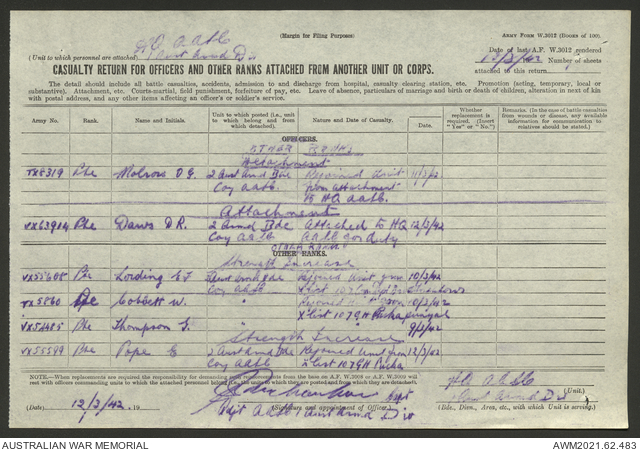 (Margin for Filing Purposes)
ARMY FORM W.3012 (Books of 100).
HQ AASC
(Unit to which personnel are attached) 1 Aust Armd Div
Date of last A.F. W.3012 rendered
Number of sheets
attached to this return
CASUALTY RETURN FOR OFFICERS AND OTHER RANKS ATTACHED FROM ANOTHER UNIT OR CORPS.
The detail should include all battle casualties, accidents, admission to and discharge from hospital, casualty clearing station, etc. Promotion (acting, temporary, local or
substantive). Attachment, etc. Courts-martial, field punishment, forfeiture of pay, etc. Leave of absence, particulars of marriage and birth or death of children, alteration in next of kin
with postal address, and any other items affecting an officer's or soldier's service.
Army No. Rank. Name and Initials. Unit to which posted (i.e., unit to which belong and from which detached). Nature and Date of Casualty. Date. Whether replacement is required. (Insert "Yes" or "No.") Remarks. (In the case of battle casualties from wounds or disease, any available information for communication to relatives should be stated.)
OFFICERS.
OTHER RANKS
Detachment
TX8319 Pte D G. 2 Aust Armd Bde Rejoined Unit 11/3/42
Coy AASC. from attachment
to HQ AASC.
Attachment
VX63914 Pte Daws D R. 2 Armd Bde Attached to HQ 12/3/42
Coy AASC AASC for duty
OTHER RANKS
OTHER RANKS.
Strength Increase
VX55608 Pte Lording E J 10/3/42
Coy AASC
TX5860 Pte Cobbett W. " 10/3/42
X List 107 GH Puckapunyal
VX54485 Pte Thompson G. " 9/3/42
Strength Increase
VX55599 Pte Pope E 2 Aust Armd Bde Rejoined Unit from 12/3/42
Coy AASC X List 107 GH Pucka
NOTE.—When replacements are required the responsibility for demanding
rest with officers commanding units to which the attached personnel belong
Capt HQ AASC
(Date) 12/3/42 19 Adjt AASC 1 Aust Armd Div 1 Aust Armd Div (Unit.)
(Signature and appointment of Officer.) (Bde., Divn., Area, etc., with which Unit is serving.)
AUSTRALIAN WAR MEMORIAL
AWM2021.62.483